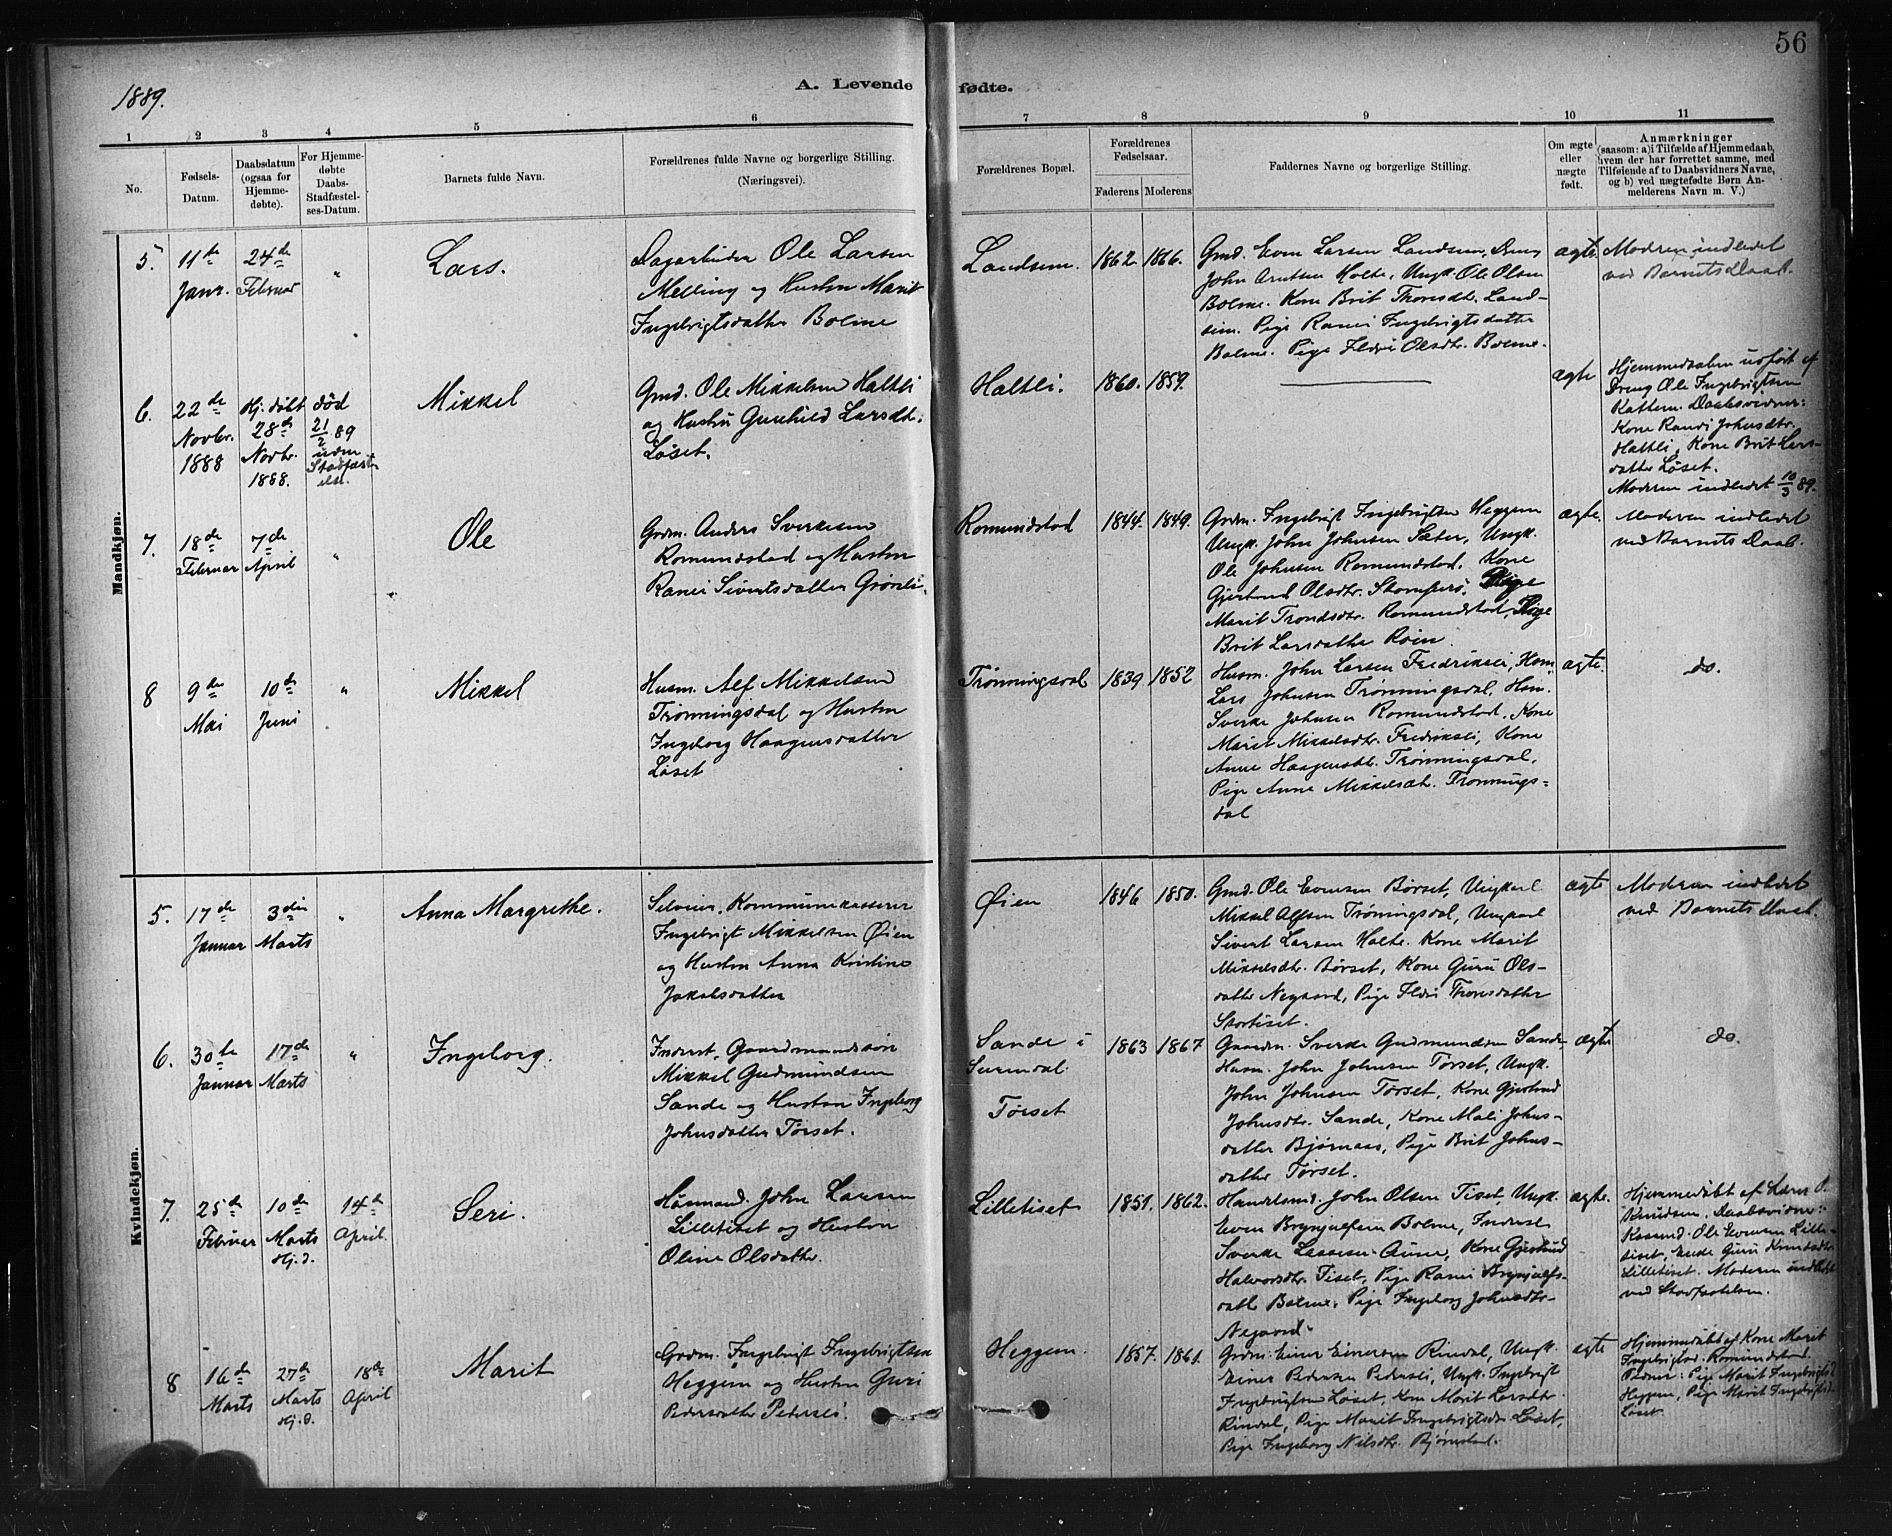 56
1889.
A. Levende fødte.
1 2 3 4 5 6 7 8 9 10 11
No.
Fødsels-
Datum.
Daabsdatum
(ogsaa for
Hjemme-
døbte).
For Hjemme-
døbte
Daabs-
Stadfæstel-
ses-Datum.
Barnets fulde Navn.
Forældrenes fulde Navne og borgerlige Stilling.
(Næringsvei).
Forældrenes Bopæl.
Forældrenes
Fødselsaar.
Faderens Moderens
Faddernes Navne og borgerlige Stilling.
Om ægte
eller
uægte
født.
Anmærkninger
(saasom: a) i Tilfælde af Hjemmedaab,
hvem der har forrettet samme, med
Tilføiende af to Daabsvidners Navne,
og b) ved uægtefødte Børn An-
melderens Navn m. V.)
Mandkjøn.
5.
11te
Janr.
24de
Februar
"
Lars.
Ole Larsen
Melling og Hustru Marit
Ingebrigtsdatter Bolme
Landsem.
1862. 1866.
Gmd. Even Larsen Landsem, Dreng
John Arntsen Holte, Ungk. Ole Olsen
Bolme. Kone Brit Thoresdtr. Land-
sem. Pige Ranei Ingebrigtsdatter
Bolme. Pige Ildri Olsdtr. Bolme.
ægte
Moderen indledet
ved Barnets Daab.
6.
22de
Novbr.
1888
Hj. døbt
28de
Novbr.
1888.
død
21/2 89
uden
Stadfæst-
else.
Mikkel
Gmd. Ole Mikkelsen Haltli
og Hustru Gunhild Larsdtr.
Løset.
Haltli.
1860. 1859.
ægte
Hjemmedaaben udført af
Dreng Ole Ingebrigtsen
Kattem. Daabsvidner:
Kone Randi Johnsdtr.
Haltli, Kone Brit Lars-
datter Løset.
Moderen indledet 10/3 89.
7.
18de
Februar
7de
April
"
Ole
Grdm. Anders Sverkesen
Romundstad og Hustru
Ranei Sivertsdatter Grønli.
Romundstad
1844. 1849.
Grdm. Ingebrigt Ingebrigtsen Heggem
Ungk. John Johnsen Sæter, Ungk.
Ole Johnsen Romundstad. Kone
Gjertrud Olsdtr.
Marit Trondsdtr. Romundstad, Pige
Brit Larsdatter Røen
ægte.
Moderen indledet
ved Barnets Daab.
8
9de
Mai
10de
Juni
"
Mikkel
Husm. Alf Mikkelsen
Trønningsdal og Hustru
Ingeborg Haagensdatter
Løset
Trønningsdal
1839. 1852
Husm. John Larsen Fredriksli, Husm.
Lars Johnsen Trønningsdal, Husm.
Sverke Johnsen Romundstad. Kone
Marit Mikkelsdtr. Fredriksli, Kone
Anne Haagensdtr. Trønningsdal,
Pige Anne Mikkelsdtr. Trønnings-
dal
ægte
do.
Kvindekjøn.
5.
17de
Januar
3die
Marts
"
Anna Margrethe.
Selveier, Kommunekasserer
Ingebrigt Mikkelsen Øien
og Hustru Anna Kristine
Jakobsdatter
Øien
1846 1850.
Gmd. Ole Evensen Børset, Ungkarl
Mikkel Alfsen Trønningsdal, Ungkarl
Sivert Larsen Holte. Kone Marit
Mikkelsdtr. Børset, Kone Guru Ols-
datter Negaard, Pige Ildri Thoresdatter
Stortiset.
ægte
Moderen indledet
ved Barnets Daab.
6.
30te
Januar
17de
Marts
"
Ingeborg.
Inderst, Gaardmandssøn
Mikkel Gudmundsen
Sande og Hustru Ingeborg
Johnsdatter Tørset.
Sande i
Surendal.
Tørset
1863 1867
Gaardm. Sverke Gudmundsen Sande,
Husm. John Johnsen Tørset, Ungk.
John Johnsen Tørset, Kone Gjertrud
Johnsdtr. Sande, Kone Mali Johns-
datter Bjørnaas, Pige Brit Johns-
datter Tørset.
ægte
do.
7.
25de
Februar
10de
Marts
Hj. d.
14de
April
Seri.
Husmand. John Larsen
Lilletiset og Hustru
Oline Olsdatter.
Lilletiset
1851. 1862.
Handlsmd. John Olsen Tiset, Ungk.
Even Brynjulfsen Bolme, Inderst
Sverke Lassesen Aune, Kone Gjertrud
Halvorsdtr. Tiset, Pige Ranei Brynjulfs-
datt. Bolme, Pige Ingeborg Johnsdtr.
Negaard.
ægte.
Hjemmedøbt af Lars O.
Knudsen. Daabsvidner:
Ole Evensen Lille-
tiset, Enke Guru Knudsdtr.
Lilletiset. Moderen indledet
ved Stadfæstelsen.
8
16de
Marts
27de
Marts
Hj. d.
18de
April
Marit
Grdm. Ingebrigt Ingebrigtsen
Heggem og Hustru Guri
Pedersdatter Pedersli.
Heggem.
1857. 1861.
Grdm. Einer Einersen Rindal, Ungk.
Einer Pedersen Pedersli, Ungk. Ingebrigt
Ingebrigtsen Løset, Kone Marit Larsdtr.
Rindal, Pige Marit Ingebrigtsdtr. Løset,
Pige Ingeborg Nilsdtr. Bjørnstad.
ægte
Hjemmedøbt af Kone Marit
Ingebrigtsd. Romundstad.
Pige Marit Ingebrigtsd.
Heggem, Pige Marit Ingebrigtsd.
Løset.